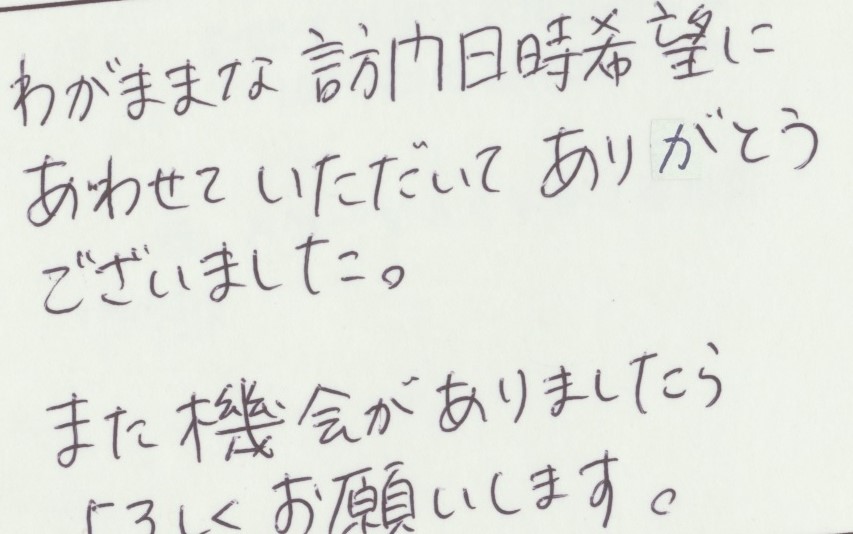 わがままな 訪门日時希望に
あわせて いただいて ありがとう
ございました。
また機会がありましたら
よろしくお願いします。